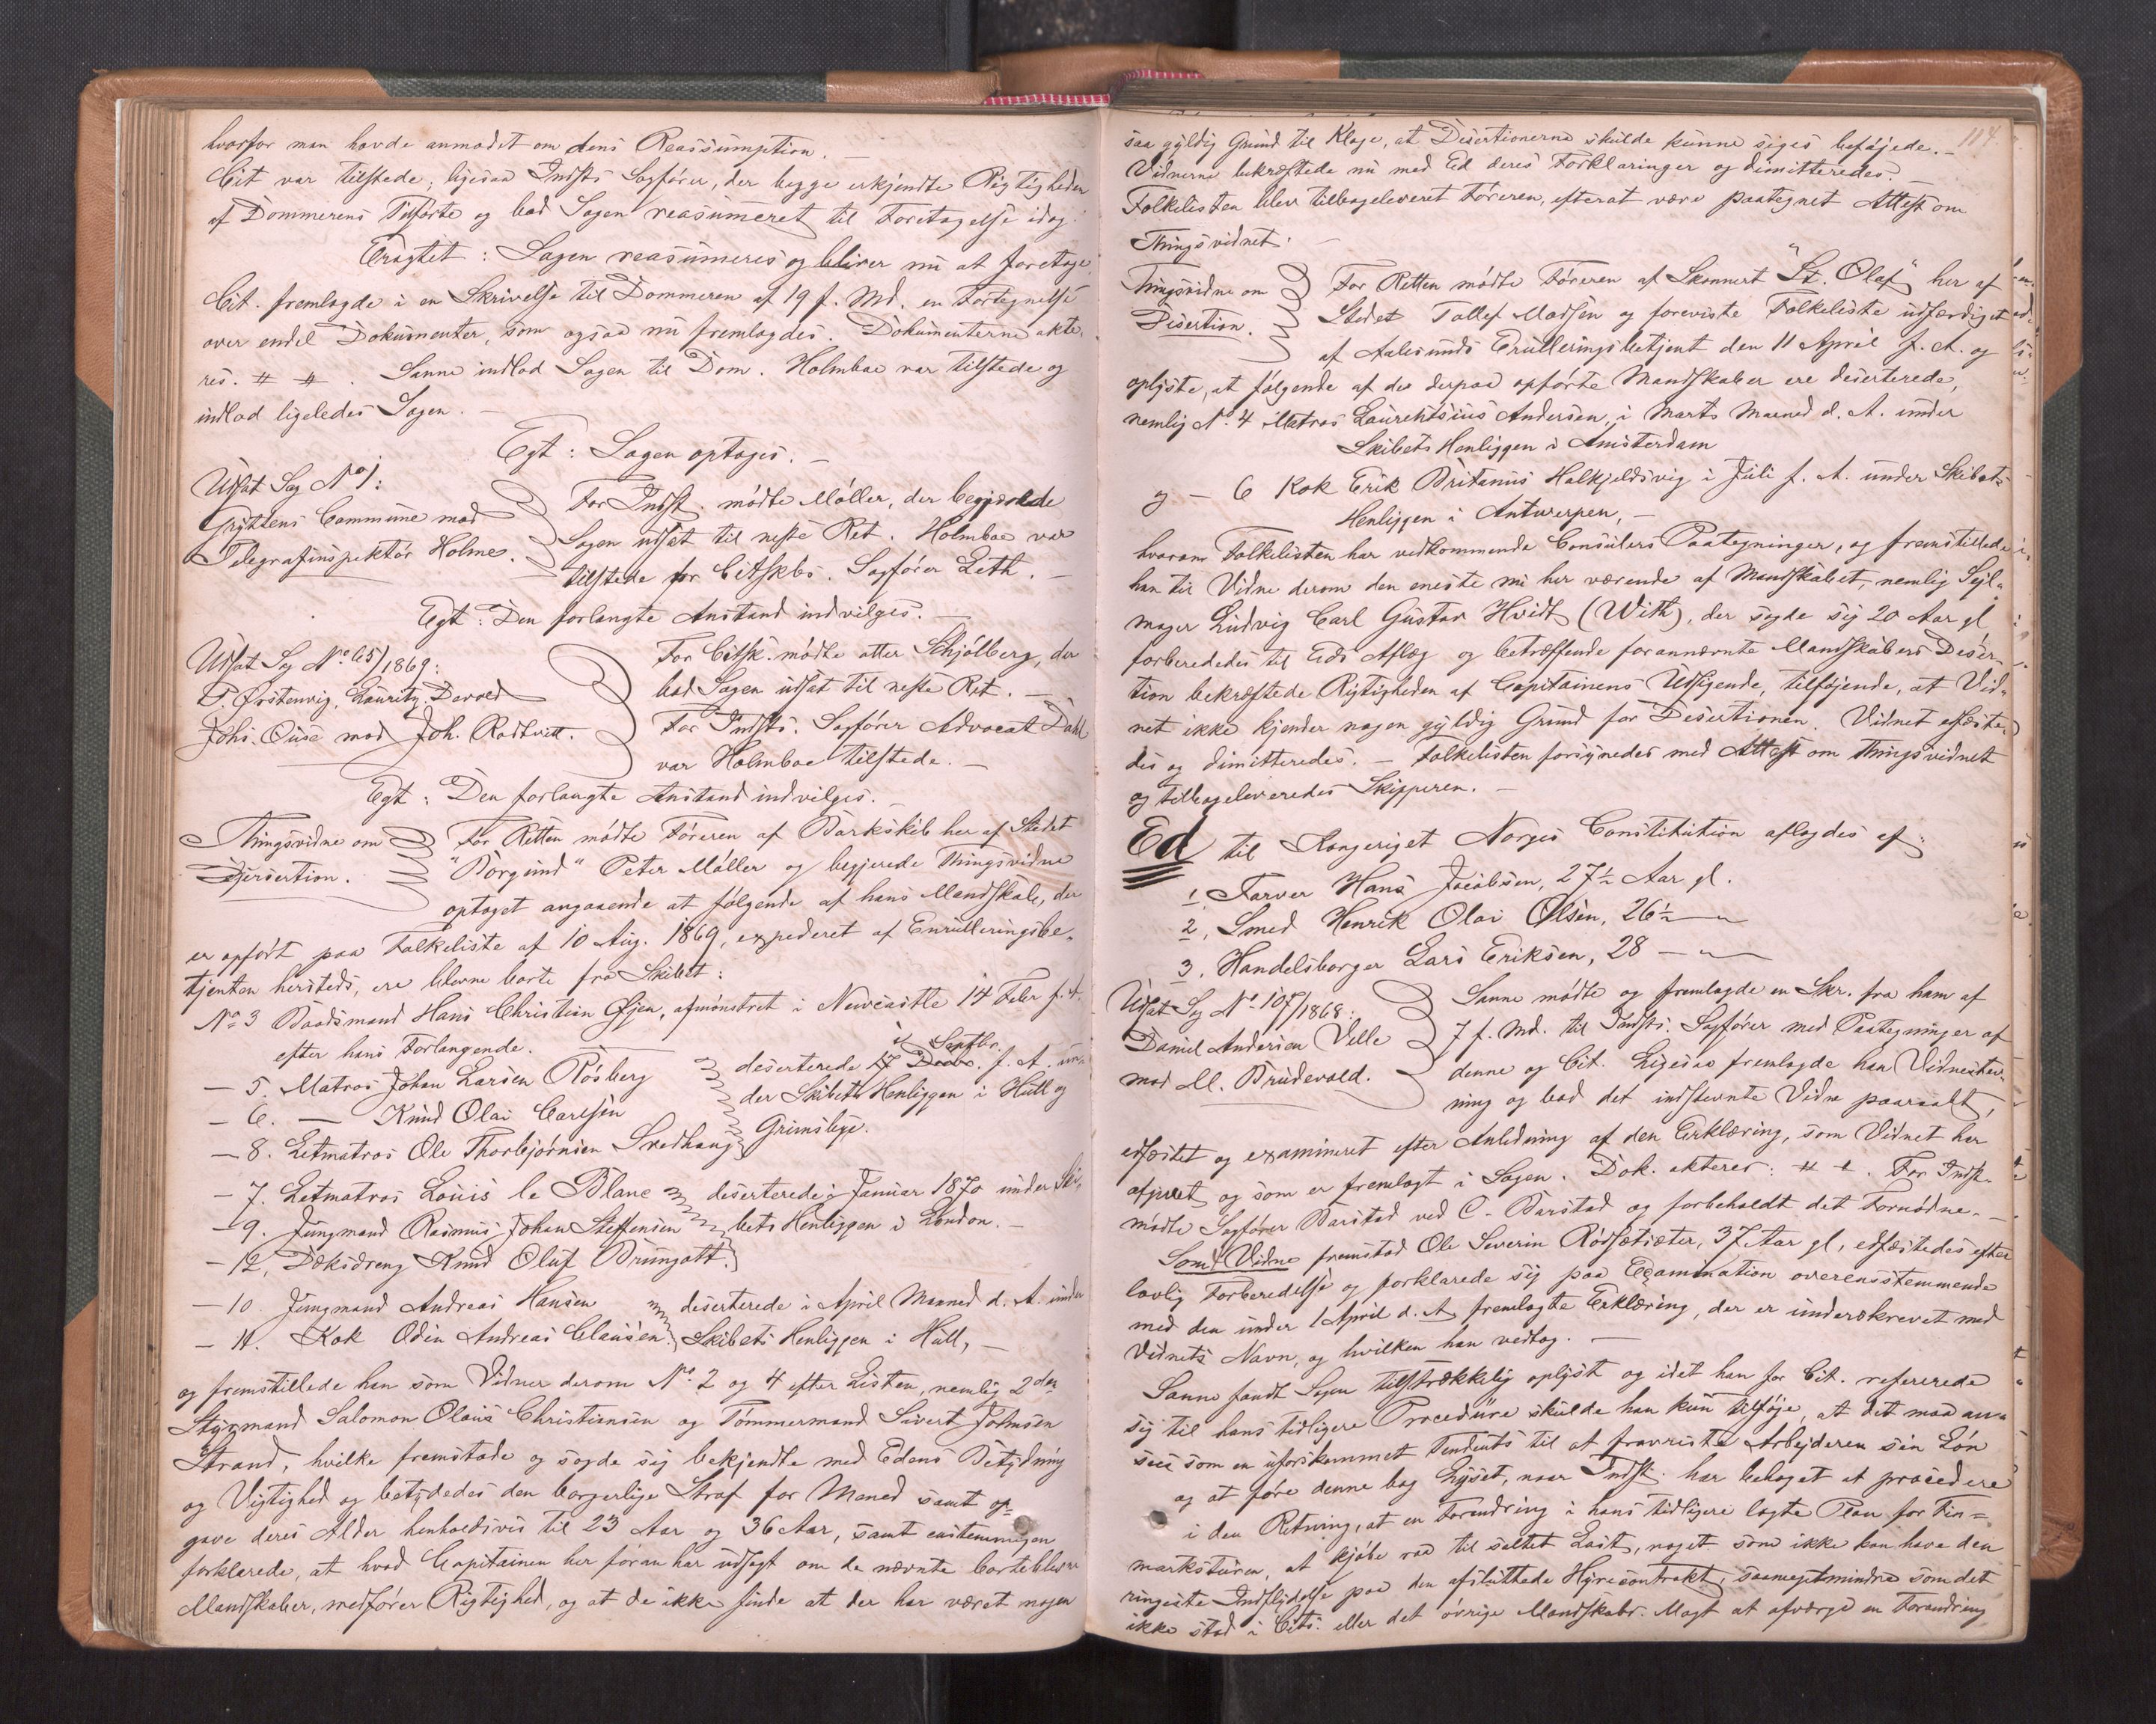 hvorfor man havde anmodet om dens Reassumption. –
Cit var tilstede, ligesaa Indsts Sagfører, der begge erkjendte Rigtigheden
af Dommerens Tilførte og bad Sagen reasumeret til Foretagelse idag.
Eragtet: Sagen reasumeres og bliver nu at foretage.
Cit. fremlagde i en Skrivelse til Dommeren af 19 f. Md. en Fortegnelse
over endel Dokumenter, som ogsaa nu fremlagdes. Dokumenterne akte-
res. # #. Sanne indlod Sagen til Dom. Holmboe var tilstede og
indlod ligeledes Sagen. –
Egt: Sagen optages. –
Udsat Sag No 1:
Gryttens Commune mod
Telegrafinspektør Holme.
For Indst. mødte Møller, der begjærede
Sagen udsat til neste Ret. Holmboe var
tilstede for Citskbs. Sagfører Leth. –
Egt: Den forlangte Anstand indvilges. –
Udsat Sag No 65/1869:
P. Ørstenvig, Lauritz Devold
Johs. Ouse mod Joh. Rodtvitt.
For Citsk. mødte atter Schjølberg, der
bad Sagen udsat til neste Ret. –
For Indsts. Sagfører Advocat Dahl
var Holmboe tilstede. –
Egt: Den forlangte Anstand indvilges. –
Thingsvidne om
Desertion.
For Retten mødte Føreren af Barkskib her af Stedet
"Borgund" Peter Møller og begjerede Thingsvidne
optaget angaaende at følgende af hans Mandskab, der
er opført paa Folkeliste af 10 Aug. 1869, expederet af Enrulleringsbe-
tjenten hersteds, ere blevne borte fra Skibet:
No 3 Baadsmand Hans Christian Øjen, afmønstret i Newcastle 14 Febr f. A.
efter hans Forlangende.
– 5. Matros Johan Larsen Røsberg
– 6. – Knud Olai Carlsen
– 8. Letmatros Ole Thorbjørnsen Svedhaug
deserterede i Septbr. f. A. un-
der Skibets Henliggen i Hull og
Grimsbye.
– 7. Letmatros Louis le Blanc
– 9. Jungmand Rasmus Johan Steffensen
– 12, Dæksdreng Knud Oluf Brungott.
deserterede i Januar 1870 under Ski-
bets Henliggen i London. –
– 10. Jungmand Andreas Hansen
– 11. Kok Odin Andreas Clausen.
deserterede i April Maaned d. A. under
Skibets Henliggen i Hull, –
og fremstillede han som Vidner derom No 2 og 4 efter Listen, nemlig 2den
Styrmand Salomon Olaus Christiansen og Tømmermand Sivert Johnsen
Strand, hvilke fremstode og sagde sig bekjendte med Edens Betydning
og Vigtighed og betydedes den borgerlige Straf for Mened samt op-
gave deres Alder henholdsvis til 23 Aar og 36 Aar, samt enstemmigen
forklarede, at hvad Capitainen her foran har udsagt om de nævnte bortebleve
Mandskaber, medfører Rigtighed, og at de ikke finde at der har været nogen
114.
saa gyldig Grund til Klage, at Desertionerne skulde kunne siges beføjede. –
Vidnerne bekræftede nu med Ed deres Forklaringer og dimitteredes. –
Folkelisten blev tilbageleveret Føreren, efterat være paategnet Attest om
Thingsvidnet. –
Tingsvidne om
Desertion.
For Retten mødte Føreren af Skonnert "St. Olaf" her af
Stedet Tollef Madsen og foreviste Folkeliste udfærdiget
af Aalesunds Enrulleringsbetjent den 11 April f. A. og
oplyste, at følgende af de derpaa opførte Mandskaber ere deserterede,
nemlig No 4 Matros Laurentsius Andersen, i Marts Maaned d. A. under
Skibets Henliggen i Amsterdam
og – 6 Kok Erik Britanus Halkjeldsvig i Juli f. A. under Skibets
Henliggen i Antwerpen, –
hvorom Folkelisten har vedkommende Consulers Paategninger, og fremstillede
han til Vidne derom den eneste nu her værende af Mandskabet, nemlig Sejl-
mager Ludvig Carl Gustav Hvidt (With), der sagde sig 20 Aar gl
forberededes til Eds Aflæg og betræffende forannævnte Mandskabers Deser-
tion bekræftede Rigtigheden af Capitainens Udsigende, tilføjende, at Vid-
net ikke kjender nogen gyldig Grund for Desertionen. Vidnet edfæste-
des og dimitteredes. – Folkelisten forsynedes med Attest om Thingsvidnet
og tilbageleveredes Skipperen. –
Ed til Kongeriget Norges Constitution aflagdes af:
1, Farver Hans Jacobsen, 27½ Aar gl.
2, Smed Henrik Olai Olsen, 26½ – "
3. Handelsborger Lars Eriksen, 28 – "
Udsat Sag No 107/1868:
Daniel Andersen Velle
mod M. Brudevold.
Sanne mødte og fremlagde en Skr. fra ham af
7 f. Md. til Indsts. Sagfører med Paategninger af
denne og Cit. Ligesaa fremlagde han Vidnestev-
ning og bad det indstevnte Vidne paaraabt,
edfæstet og examineret efter Anledning af den Erklæring, som Vidnet har
afgivet og som er fremlagt i Sagen. Dok. akteres: # #. For Indst.
mødte Sagfører Barstad ved C. Barstad og forbeholdt det Fornødne. –
Som Vidne fremstod Ole Severin Rødsætsæter, 37 Aar gl, edfæstedes efter
lovlig Forberedelse og forklarede sig paa Examination overensstemmende
med den under 1 April d. A fremlagte Erklæring, der er underskrevet med
Vidnets Navn, og hvilken han vedtog. –
Sanne fandt Sagen tilstrækkelig oplyst og idet han for Cit. refererede
sig til hans tidligere Procedure skulde han kun tilføje, at det maa an-
sees som en uforskammet Tendents til at fravriste Arbejderen sin Løn
og at føre denne bag Lyset, naar Indst. har behaget at procedere
i den Retning, at en Forandring i hans tidligere lagte Plan for Fin-
marksturen, at kjøbe raa til saltet Last, noget som ikke kan have den
ringeste Indflydelse paa den afsluttede Hyrecontrakt, saameget mindre som det
ikke stod i Cits. eller det øvrige Mandskabs. Magt at afværge en Forandring